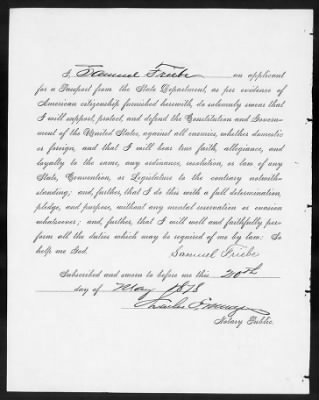 I, Samuel Friebe an applicant
for a Passport from the State Department, as per evidence of
American citizenship furnished herewith, do solemnly swear that
I will support, protect, and defend the Constitution and Govern-
ment of the United States, against all enemies, whether domestic
or foreign, and that I will bear true faith, allegiance, and
loyalty to the same, any ordinance, resolution, or law of any
State, Convention, or Legislature to the contrary notwith-
standing; and, further, that I do this with a full determination,
pledge, and purpose, without any mental reservation or evasion
whatsoever; and, further, that I will well and faithfully per-
form all the duties which may be required of me by law: So
help me God.
Samuel Friebe
Subscribed and sworn to before me this 20th
day of May 1878
Charles
Notary Public.